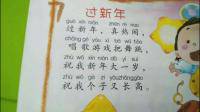 过新年
guò xīn nián zhēn rè nào
过新年，真热闹，
chàng gē yóu xì bǎ wǔ tiào
唱歌游戏把舞跳，
zhù wǒ xīn nián dà yí suì
祝我新年大一岁，
zhù wǒ gè zi yòu zhǎng gāo
祝我个子又长高。